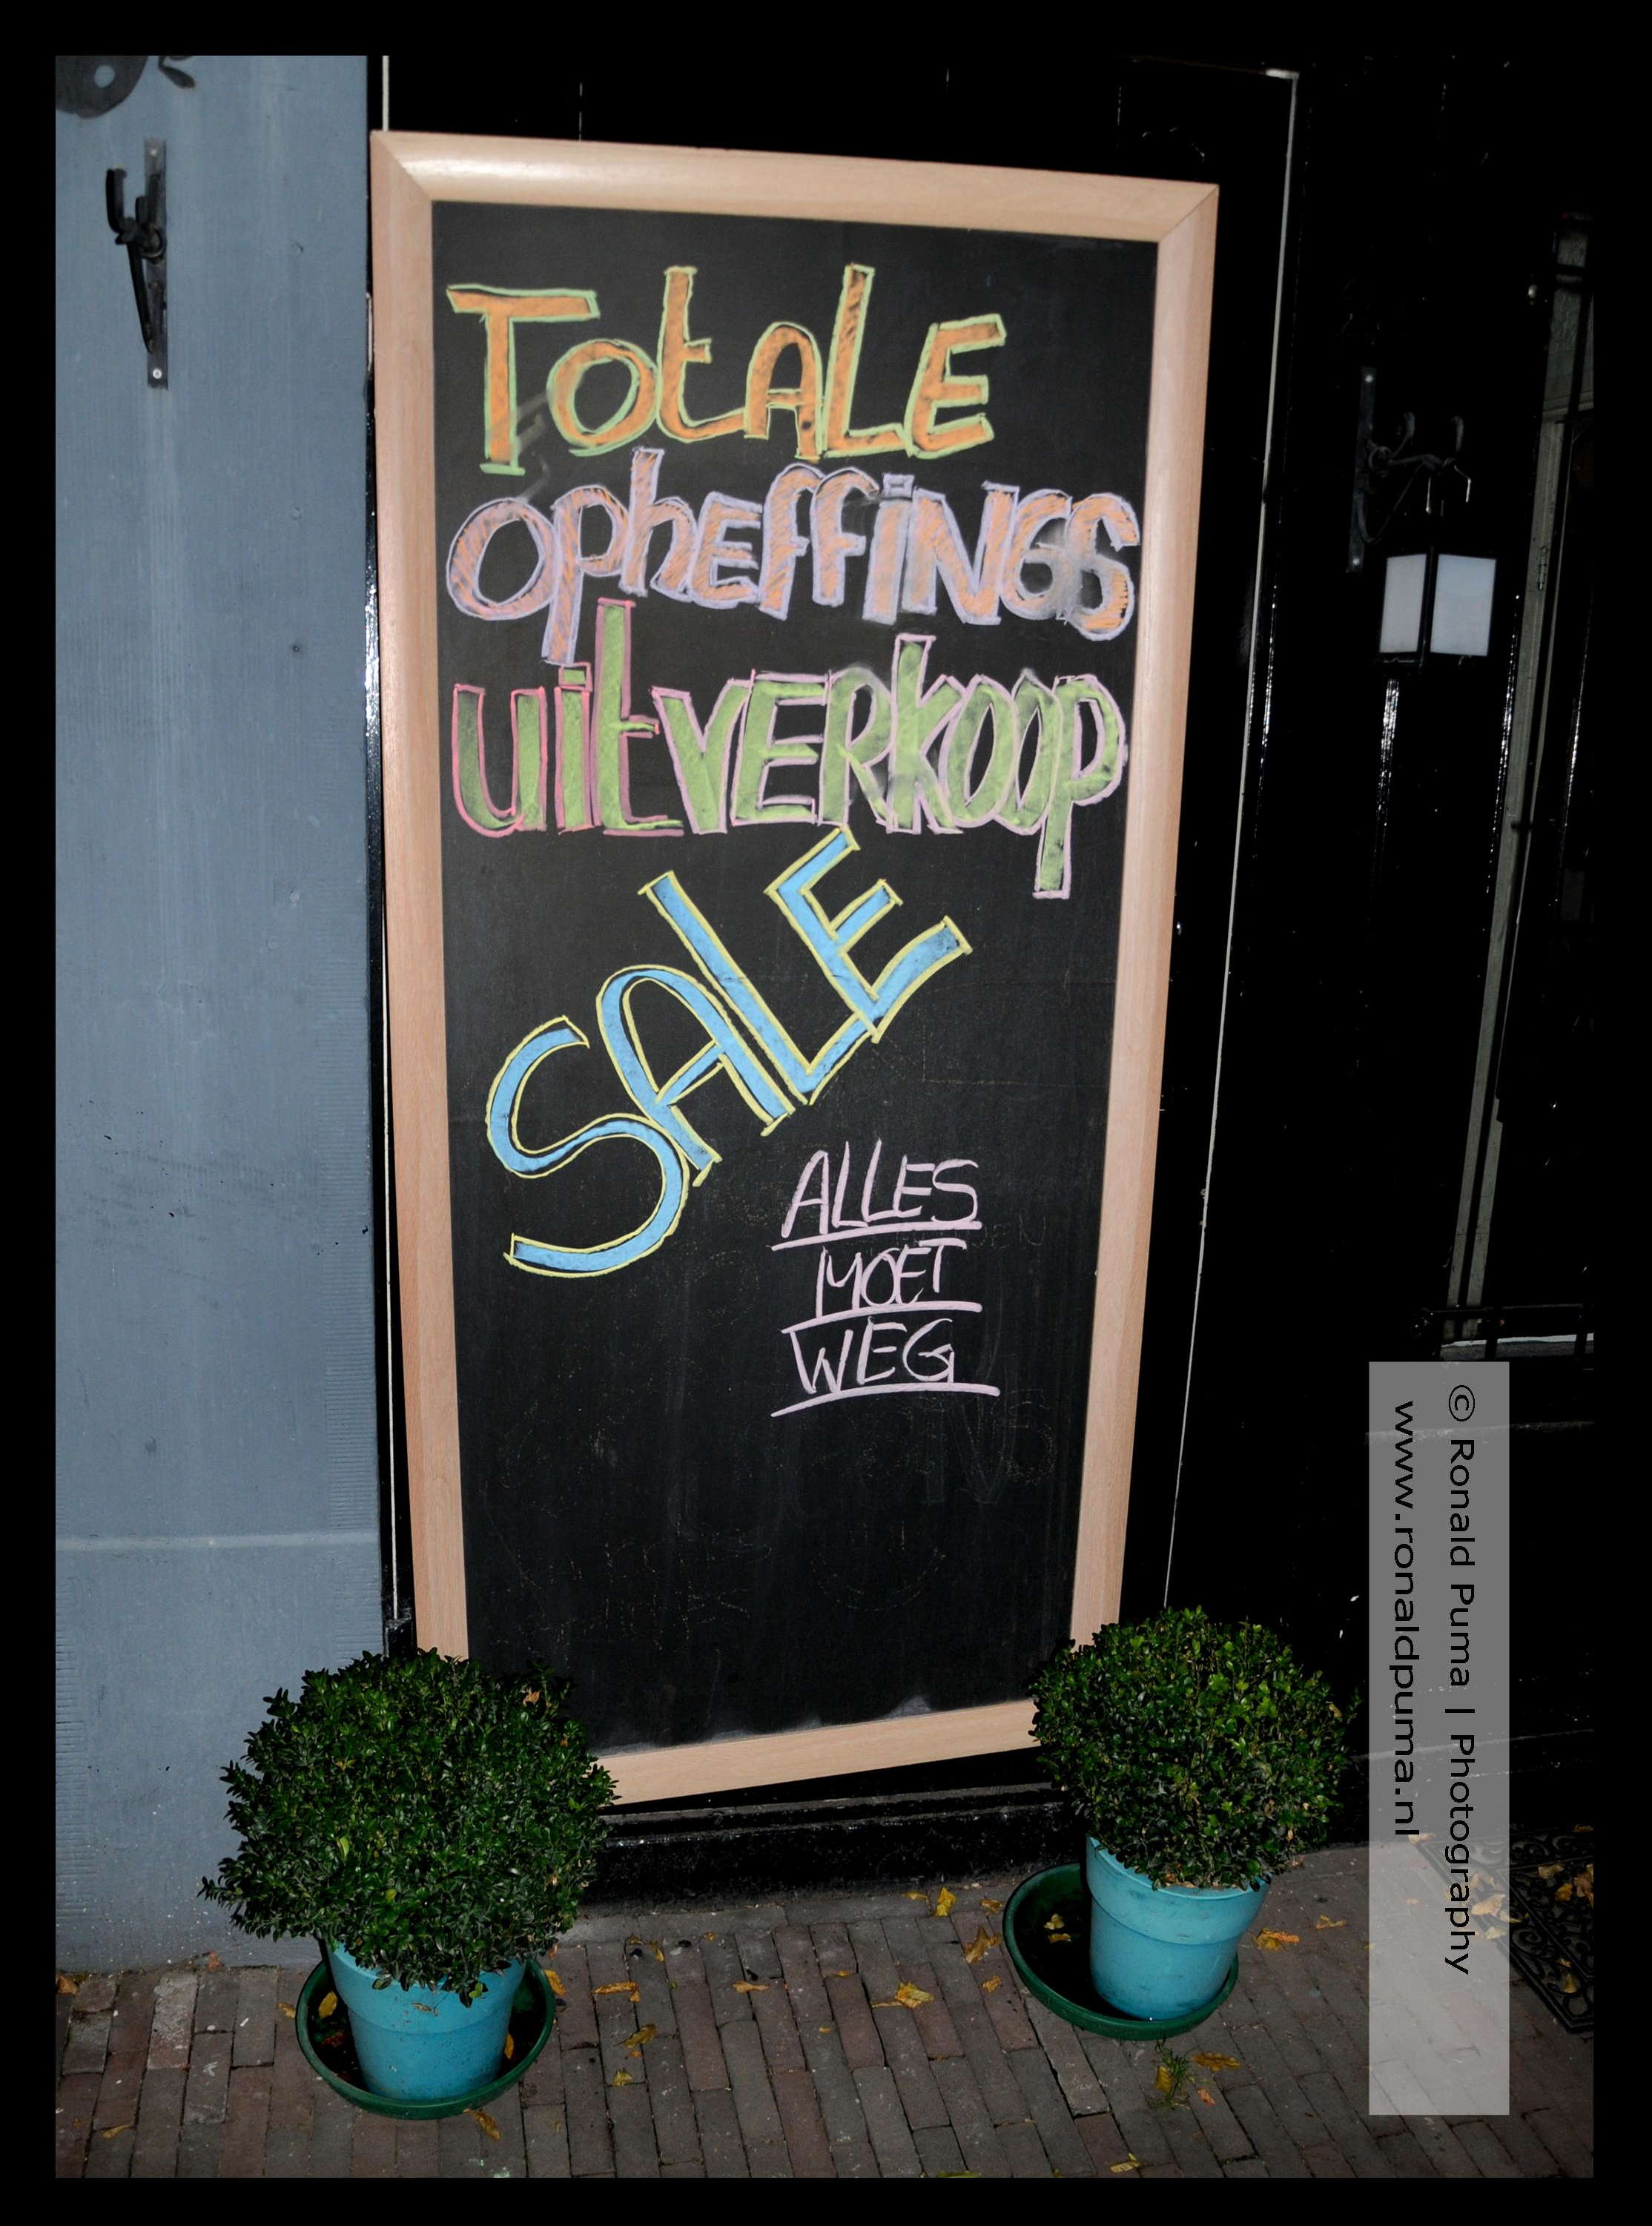 TotALE
OphEffiNGS
uitVERkoop
SALE
ALLES
MOET
WEG
© Ronald Puma | Photography
www.ronaldpuma.nl